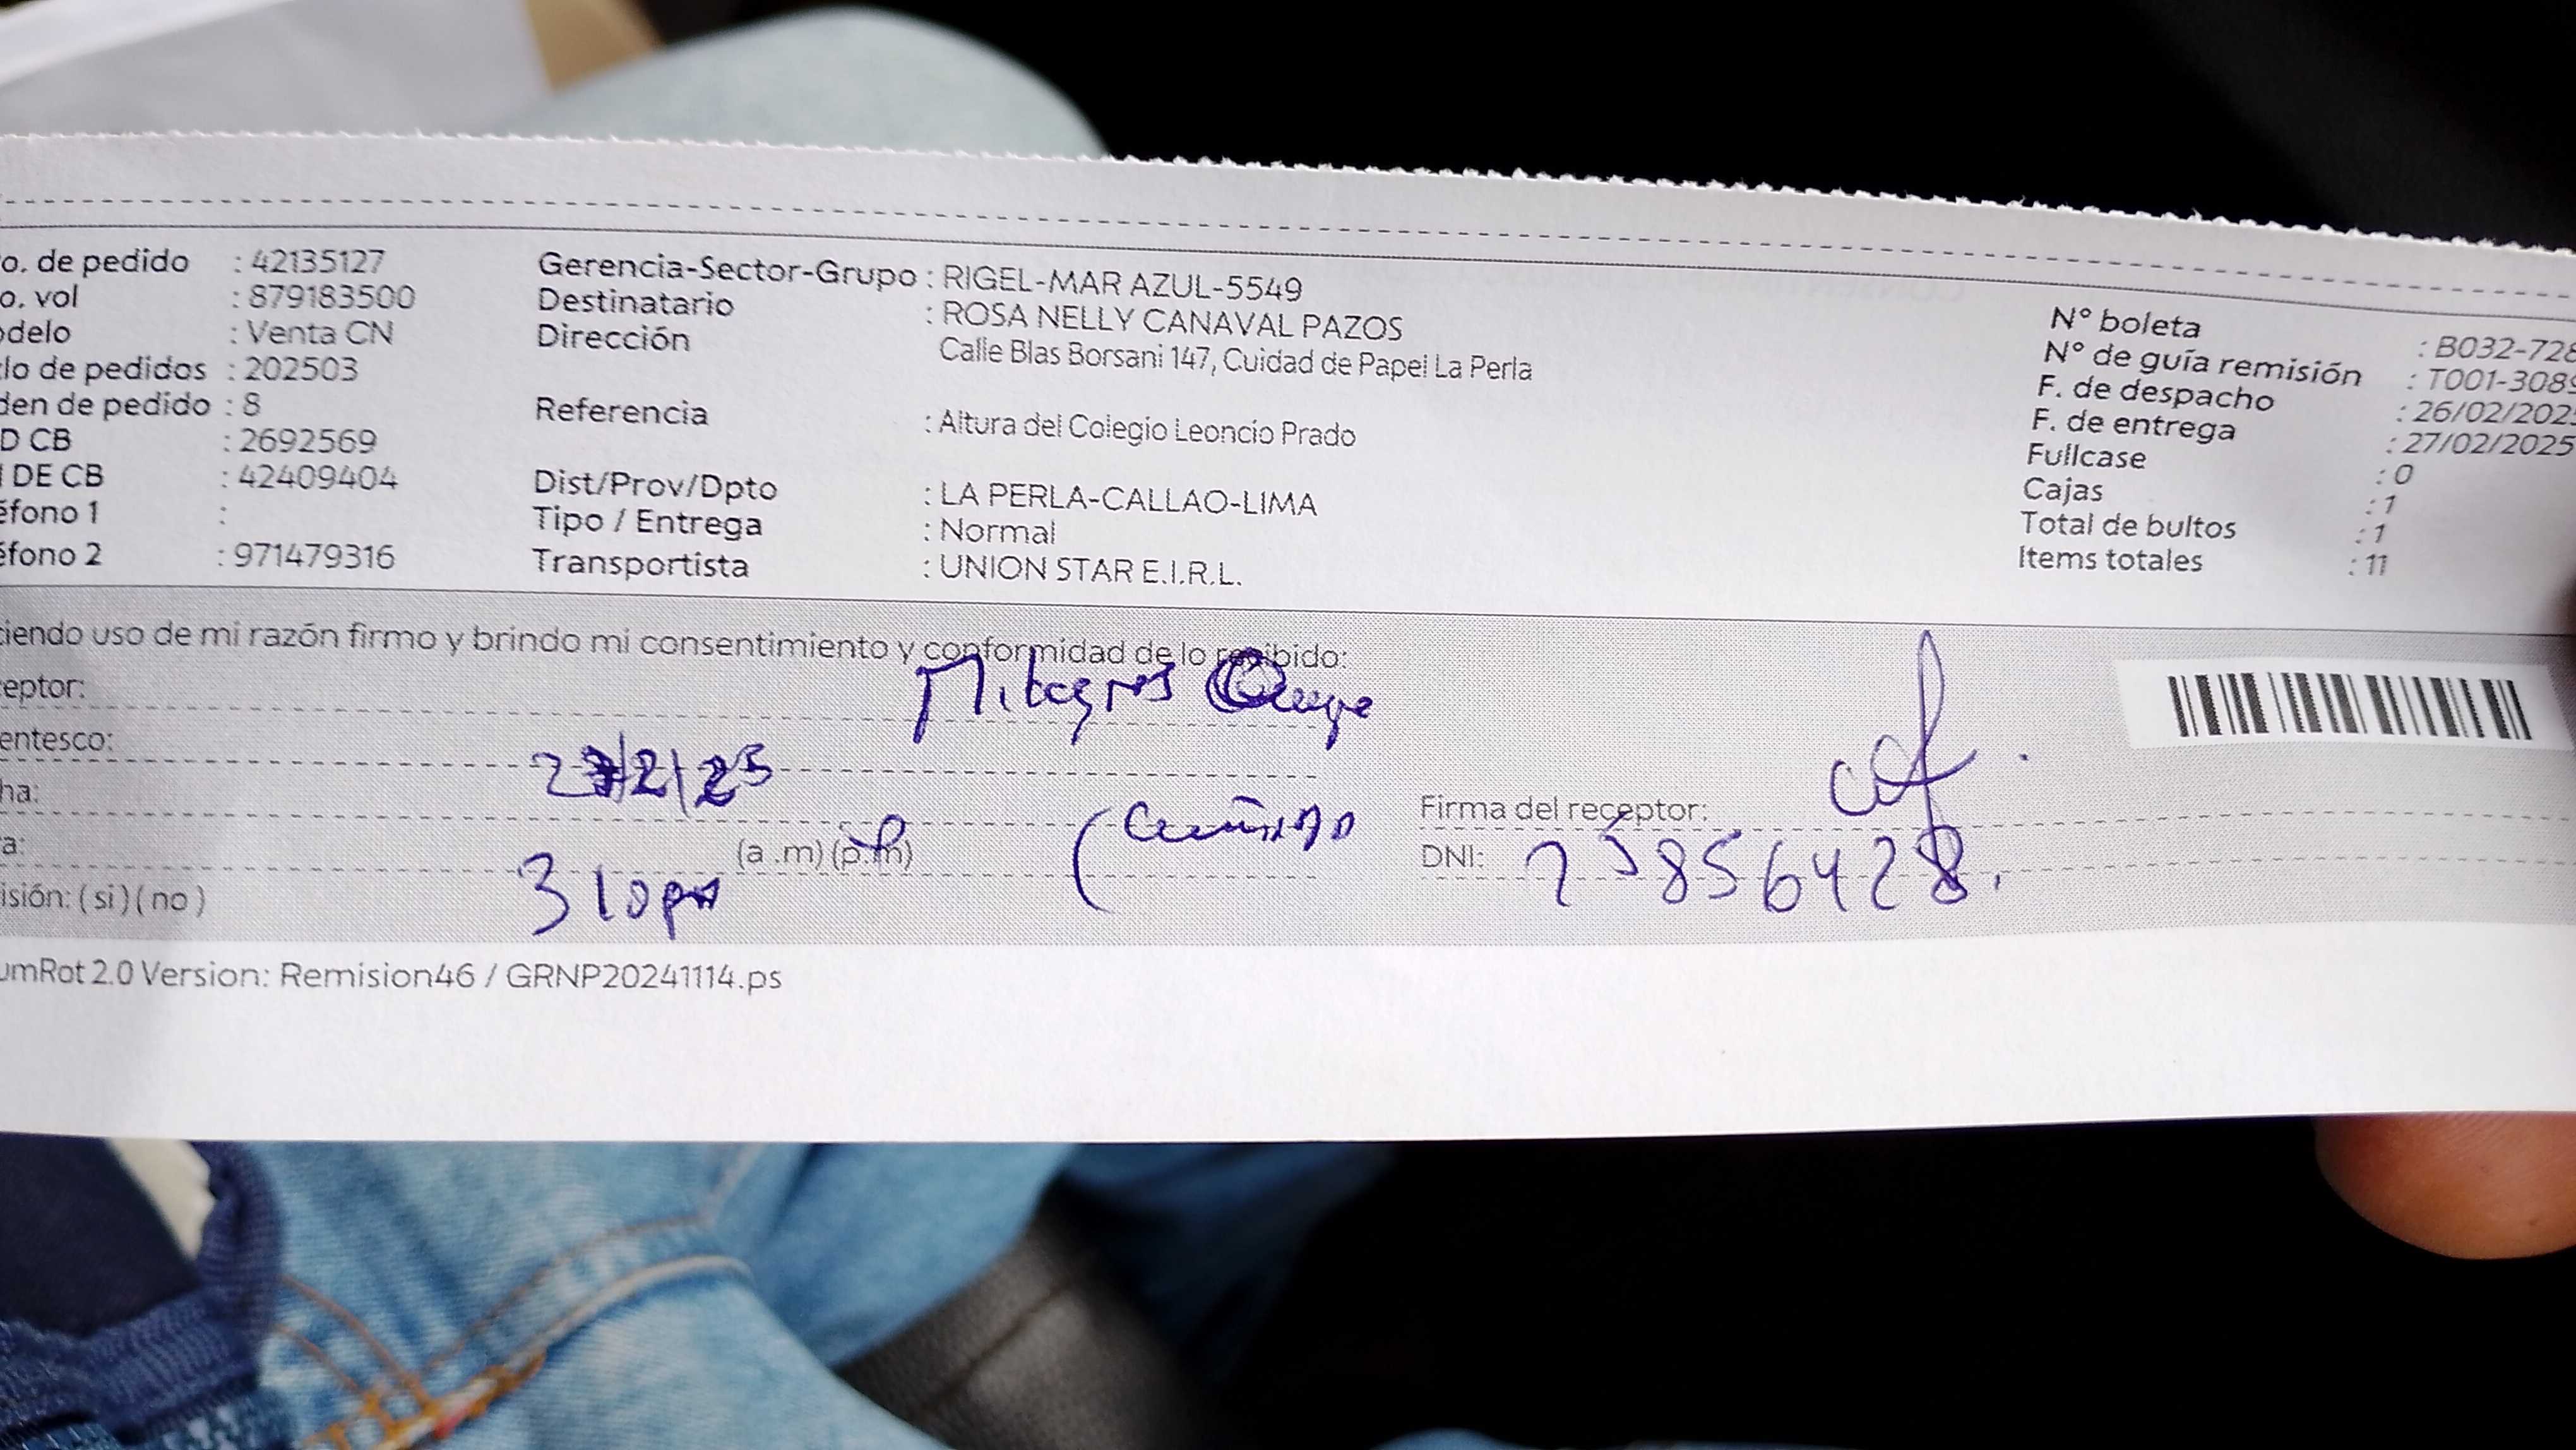 o. de pedido : 42135127
o. vol : 879183500
odelo : Venta CN
lo de pedidos : 202503
den de pedido : 8
D CB : 2692569
DE CB : 42409404
éfono 1 :
éfono 2 : 971479316
Gerencia-Sector-Grupo : RIGEL-MAR AZUL-5549
Destinatario : ROSA NELLY CANAVAL PAZOS
Dirección Calle Blas Borsani 147, Cuidad de Papel La Perla
Referencia : Altura del Colegio Leoncio Prado
Dist/Prov/Dpto : LA PERLA-CALLAO-LIMA
Tipo / Entrega : Normal
Transportista : UNION STAR E.I.R.L.
N° boleta : B032-728
N° de guía remisión : T001-3089
F. de despacho : 26/02/202
F. de entrega : 27/02/2025
Fullcase : 0
Cajas : 1
Total de bultos : 1
Items totales : 11
ciendo uso de mi razón firmo y brindo mi consentimiento y conformidad de lo recibido:
eptor: Milagros
entesco:
ha: 27/2/25
a: 3 10 pm (a .m) (p.m)
isión: ( si ) ( no )
Firma del receptor:
DNI: 25856428
umRot 2.0 Version: Remision46 / GRNP20241114.ps